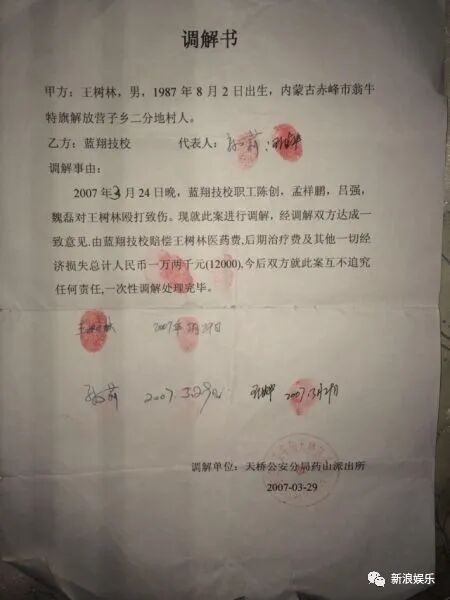 调解书
甲方：王树林，男，1987年8月2日出生，内蒙古赤峰市翁牛
特旗解放营子乡二分地村人。
乙方：蓝翔技校 代表人：
调解事由：
2007年3月24日晚，蓝翔技校职工陈创，孟祥鹏，吕强，
魏磊对王树林殴打致伤。现就此案进行调解，经调解双方达成一
致意见.由蓝翔技校赔偿王树林医药费,后期治疗费及其他一切经
济损失总计人民币一万两千元(12000),今后双方就此案互不追究
任何责任,一次性调解处理完毕。
王树林 2007年3月29日
2007.3.29日 2007.3月29日
调解单位：天桥公安分局药山派出所
2007-03-29
新浪娱乐